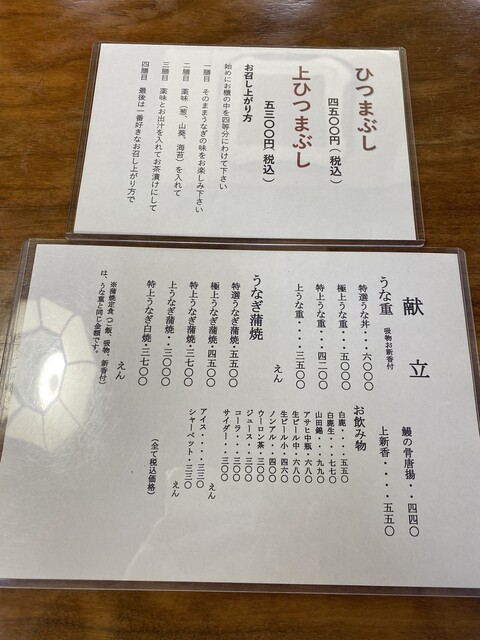 ひつまぶし
四五〇〇円(税込)
上ひつまぶし
五三〇〇円(税込)
お召し上がり方
始めにお櫃の中を四等分にわけて下さい
一膳目 そのままうなぎの味をお楽しみ下さい
二膳目 薬味(葱、山葵、海苔)を入れて
三膳目 薬味とお出汁を入れてお茶漬けにして
四膳目 最後は一番好きなお召し上がり方で
献立
うな重 吸物お新香付
特選うな丼・・六〇〇〇
極上うな重・・五〇〇〇
特上うな重・・四二〇〇
上うな重・・・三五〇〇
えん
うなぎ蒲焼
特選うなぎ蒲焼・五五〇〇
極上うなぎ蒲焼・四五〇〇
特上うなぎ蒲焼・三七〇〇
上うなぎ蒲焼・・三〇〇〇
特上うなぎ白焼・三七〇〇
えん
※蒲焼定食(ご飯、吸物、新香付)
は、うな重と同じ金額です。
鰻の骨唐揚・・四四〇
上新香・・・・五五〇
お飲み物
白鹿・・・・五五〇
白鹿生・・・七七〇
山田錦・・・九九〇
アサヒ中瓶・六八〇
生ビール中・六八〇
生ビール小・四六〇
ノンアル・・四〇〇
ウーロン茶・三〇〇
ジュース・・三〇〇
コーラ・・・三〇〇
サイダー・・三〇〇
えん
アイス・・・・三三〇
シャーベット・三三〇
えん
(全て税込価格)